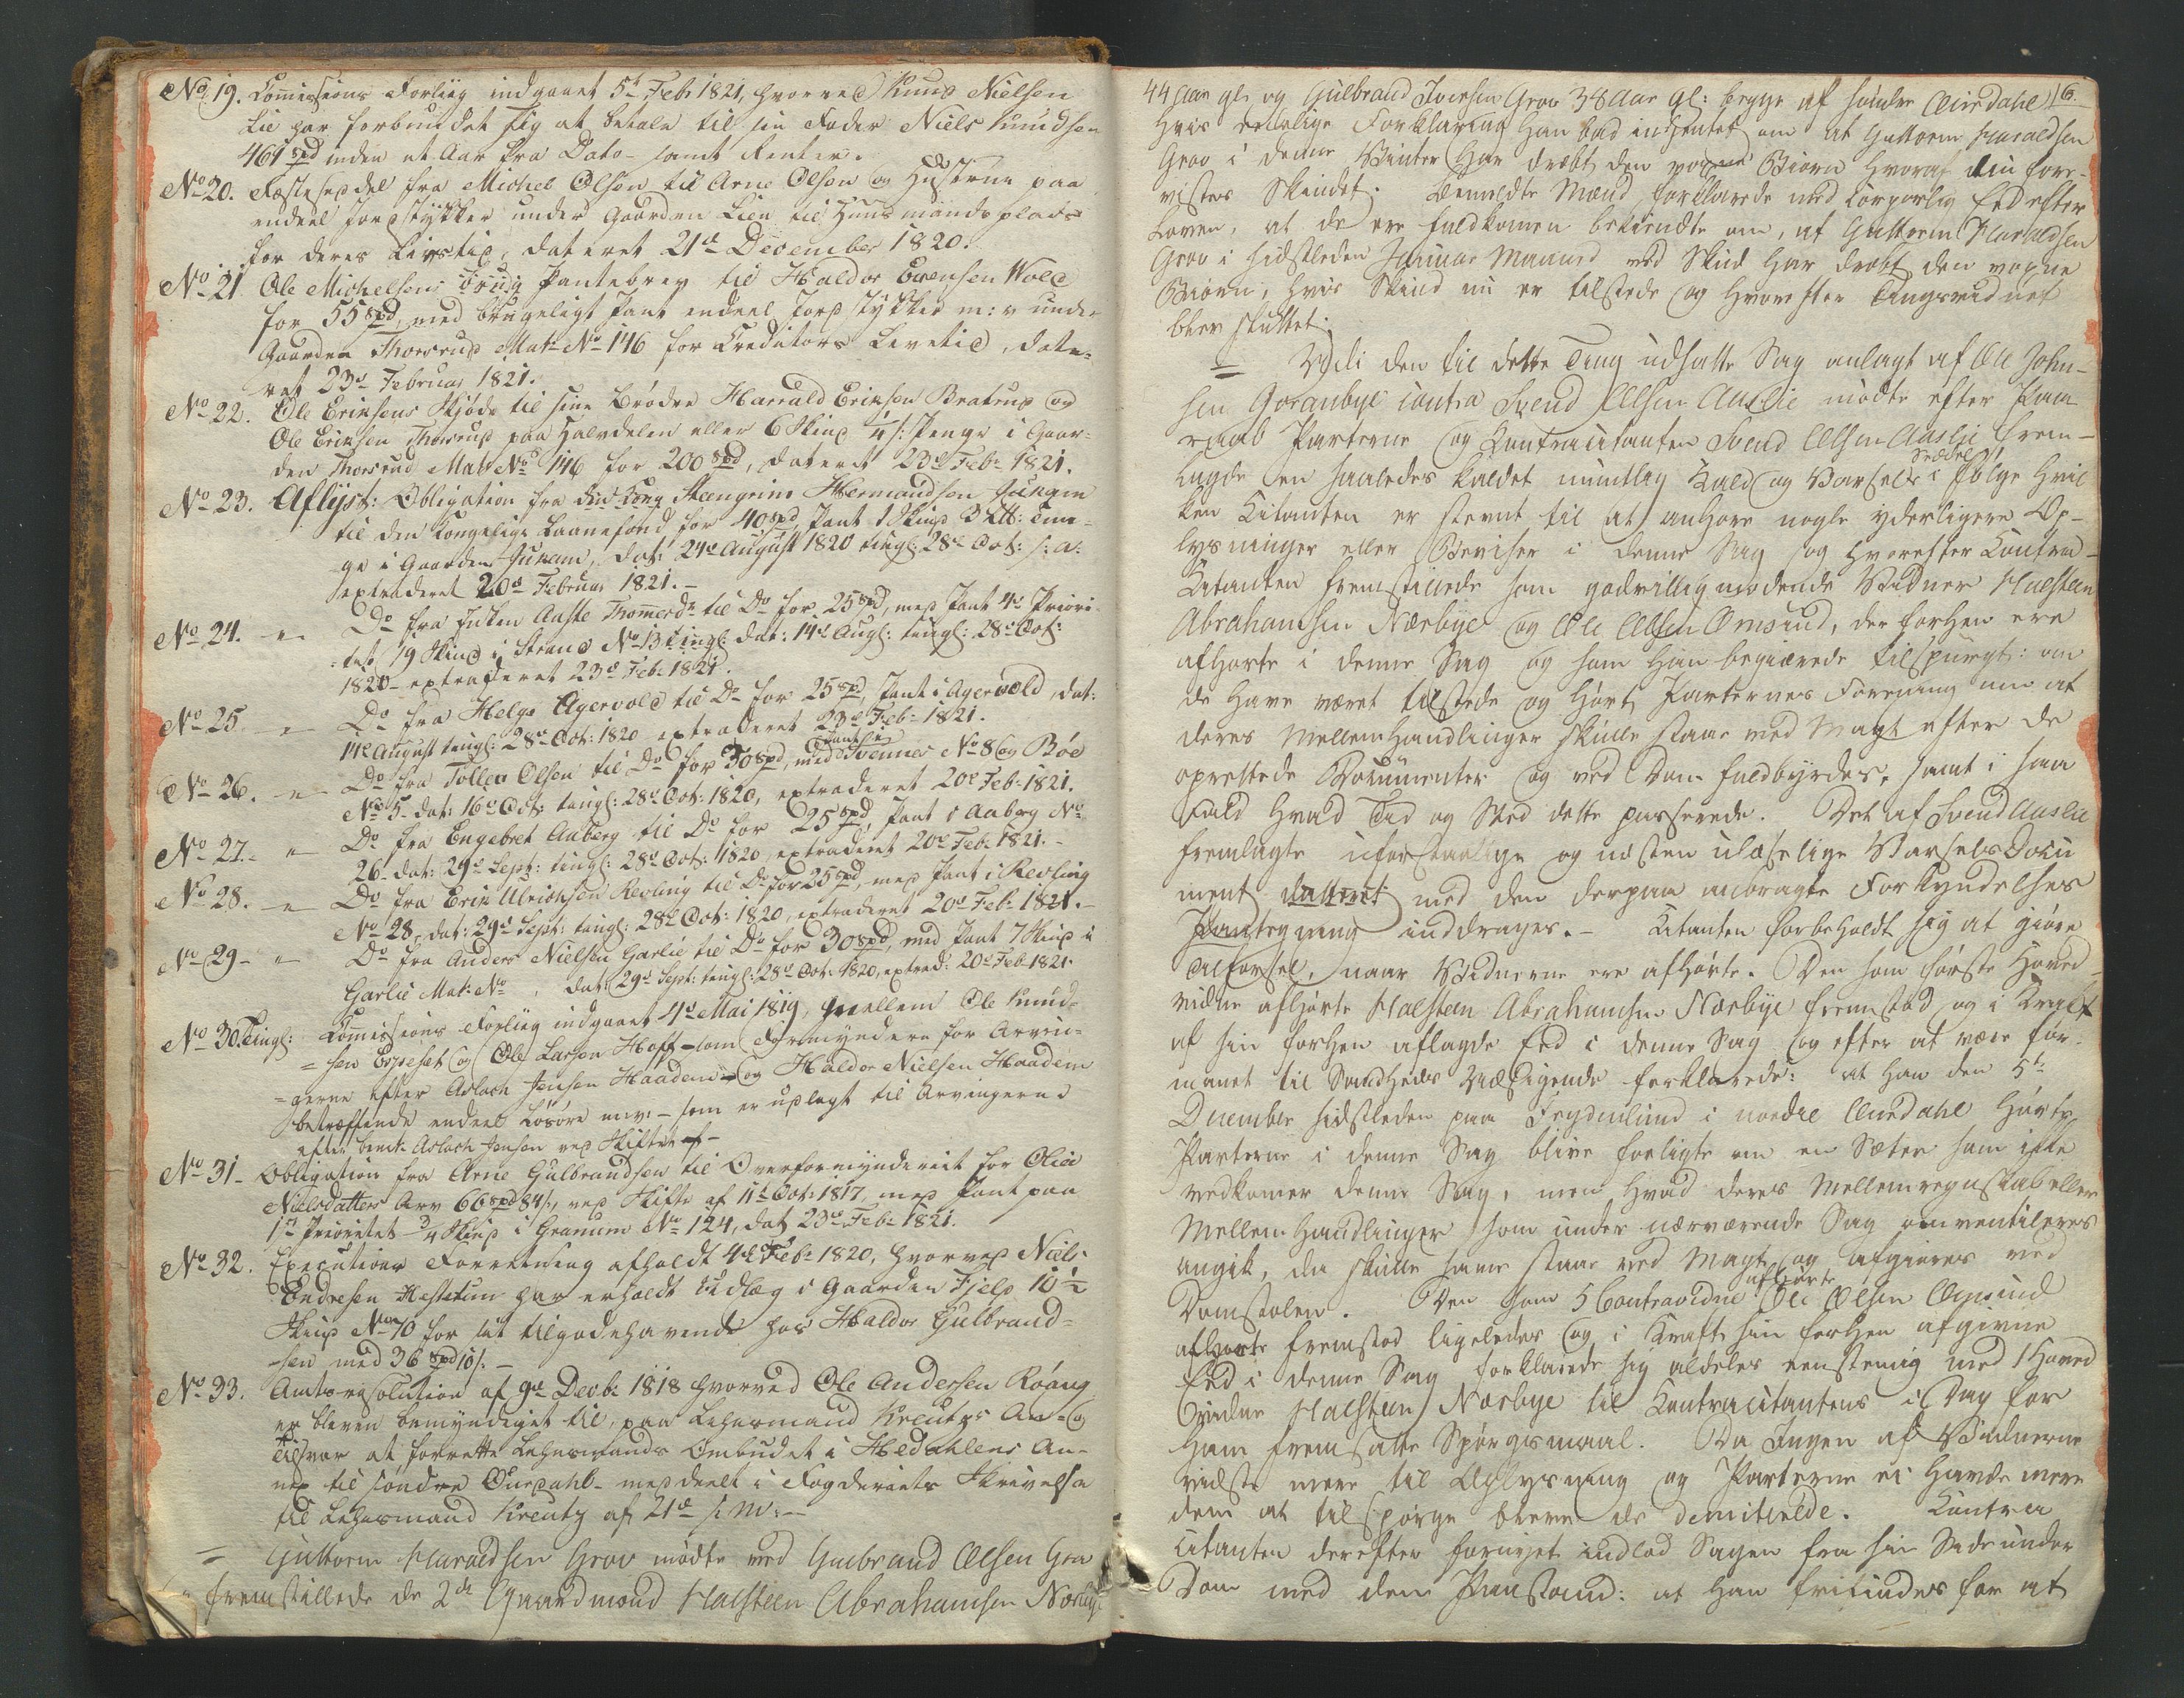 No 19. Commissions Forliig indgaaet 5t Feb: 1821, hvorved Knud Nielsen
Lie har forbundet sig at betale til sin Fader Niels Knudsen
461 Spd inden et Aar fra Dato - samt Renter.
No 20. Fæstesedel fra Michel Olsen til Arne Olsen og Hustrue paa
endeel Jordstykker under Gaarden Lien til Huusmandsplads
for deres Livstid, dateret 21de December 1820.
No 21. Ole Michelsens Pantebrev til Haldor Evensen Wold
for 55 Spd, med brugeligt Pant endeel Jordstykker m: v under
Gaarden Thorsrud Mat: No 146 for Creditors Levetid, date-
ret 23de Februar 1821.
No 22. Ole Eriksens Skjøde til sine Brødre Harrald Eriksen Bratrud og
Ole Eriksen Thorsrud paa Halvdelen eller 6 Skind i Gaar-
den Thorsrud Mat No 146 for 200 Spd, dateret 23de Feb: 1821.
No 23. Aflyst: Obligation fra Steengrim Hermandsen Juram
til den Kongelige Laanefond for 40 Spd, Pant 1 Skind 3
ge i Gaarden Juram, dat: 24de August 1820 tingl: 28de Oct: s: A:
extraderet 20de Februar 1821.
No 24. - " - Do fra Enken Aaste Thommesd: til Do for 25 Spd, med Pant 4de Priori-
tet, 19 Skind i Strand No 131 dat: 14de Aug: tingl: 28de Oct:
1820 - extraderet 23de Feb: 1821.
No 25. - " - Do fra Helge Agervold til Do for 25 Spd, Pant i Agervold, dat:
14de August tingl: 28de Oct: 1820 extraderet 23de Feb: 1821.
No 26. - " - Do fra Tollev Olsen til Do for 30 Spd, med Pant i Svennes No 8 og Bøe
No 5. dat: 16de Oct: tingl: 28de Oct: 1820, extraderet 20de Feb: 1821.
No 27. - " - Do fra Engebret Aaberg til Do for 25 Spd, Pant i Aaberg No
26 - dat: 29de Sept: tingl: 28de Oct: 1820, extraderet 20de Feb: 1821. -
No 28. - " - Do fra Erik Ulrichsen Revling til Do for 25 Spd, med Pant i Revling
No 28, dat: 29de Sept: tingl: 28de Oct: 1820, extraderet 20de Feb: 1821. -
No 29 - " - Do fra Anders Nielsen Garlie til Do for 30 Spd, med Pant 7 Skind i
Garlie Mat: No , dat: 29de Sept: tingl: 28de Oct: 1820, extrad: 20de Feb: 1821.
No 30. Tingl: Commissions Forliig indgaaet 4de Mai 1819, imellem Ole Knud-
sen Espeset og Ole Larsen Hoff - som Formyndere for Arvin-
gerne efter Aslach Jensen Haadem - og Haldor Nielsen Haadem
betræffende endeel Løsøre m: v: - som er udlagt til Arvingerne
efter bemte Aslach Jensen ved Skiftet -
No 31 - Obligation fra Arne Gulbrandsen til Overformynderiet for Olia
Nielsdatters Arv 66 Spd 84 s, ved Skifte af 11te Oct: 1817, med Pant paa
1ste Prioritet 3/4 Skind i Granum No 124, dat 23de Feb: 1821.
No 32. Executions Forretning afholdt 4de Feb: 1820, hvorved Niels
Endresen Hestekim har erholdt Udlæg i Gaarden Fjeld 10 1/2
Skind No 10 for sit tilgodehavende hos Haldor Gulbrand-
sen med 36 Spd 10 s. -
No 33. Amtsresolution af 9de Decb: 1818 hvorved Ole Andersen Røang
er bleven bemyndiget til, paa Lehnsmand Kreutz's An- og
Tilsvar at forrette Lehnsmands Ombudet i Hedahlens An-
nex til søndre Ourdahl - meddeelt i Fogderiets Skrivelse
til Lehnsmand Kreutz af 21de s: M: -
= Guttorm Haraldsen Grov mødte ved Gulbrand Olsen Gra
fremstillede de 2de Gaardmænd Halsteen Abrahamsen Nørbye
6.
44 Aar gl: og Gulbrand Iversen Grov 38 Aar gl: begge af søndre Aurdahl
hvis eenlige Forklaring han bad indhentet om at Guttorm Haraldsen
Grov i denne Winter har dræbt den voxne Biørn hvoraf den fore-
vistes Skindet. Bemeldte Mænd forklarede med Corporlig Eed efter
Loven, at de ere fuldkomen bekiendte om, at Guttorm Haraldsen
Grov i sidstleden Januar Maaned ved Skud har dræbt den voxne
Biørn, hvis Skind nu er tilstede og hvorefter Tingsvidnet
blev sluttet.
= Udi den til dette Ting udsatte Sag anlagt af Ole John-
sen Goranbye contra Svend Olsen Aaslie mødte efter Paa
raab Parterne og Contracitanten Svend Olsen Aaslie frem-
lagde en saaledes kaldet mundtlig Kald og Varsels Seddel i følge hvil
ken Citanten er stevnt til at anhøre nogle yderligere Op-
lysninger eller Beviser i denne Sag og hvorefter Contra-
Citanten fremstillede som godvillig mødende Vidner Halsteen
Abrahamsen Nørbye og Ole Olsen Ømsund, der forhen ere
afhørte i denne Sag og som han begiærede tilspurgt: om
de have været tilstede og hørt Parternes Forening om at
deres Mellemhandlinger skulle staae ved Magt efter de
oprettede Documenter og ved Dom fuldbyrdes, samt i saa
Fald hvad Tid og Sted dette passerede. Det af Svend Aaslie
fremlagte uforstaaelige og næsten ulæselige Varsels Docu
ment datteret med den derpaa anbragte Forkyndelses
Paategning inddrages. - Citanten forbeholdt sig at giøre
Tilførsel, naar Vidnerne ere afhørte. Den som første Hoved-
vidne afhørte Halsteen Abrahamsen Nørbye fremstod og i Kraft
af sin forhen aflagde Eed i denne Sag og efter at være for-
manet til Sandheds Udsigende forklarede: at han den 5te
December sidstleden paa Frydenlund i nordre Aurdahl hørte
Parterne i denne Sag blive forligte om en Sæter som ikke
vedkomer denne Sag, men hvad deres Mellemregnskab eller
Mellemhandlinger som under nærværende Sag omventileres
angik, da skulle samme staae ved Magt og afgiøres ved
Domstolen. Den som 5 Contravidne afhørte Ole Olsen Ømsund
afhørte fremstod ligeledes og i Kraft sin forhen afgivne
Eed i denne Sag forklarede sig aldeles eenstemig med 1 Hoved
vidne Halsteen Nørbye til Contracitantens i Dag for
ham fremsatte Spørgsmaal. Da Ingen af Vidnerne
vidste mere til Oplysning og Parterne ei havde mere
dem at tilspørge bleve de demitterede. Contra
citanten derefter fornyet indlod Sagen fra sin Side under
Dom med dem Paastand: at han frifindes for at